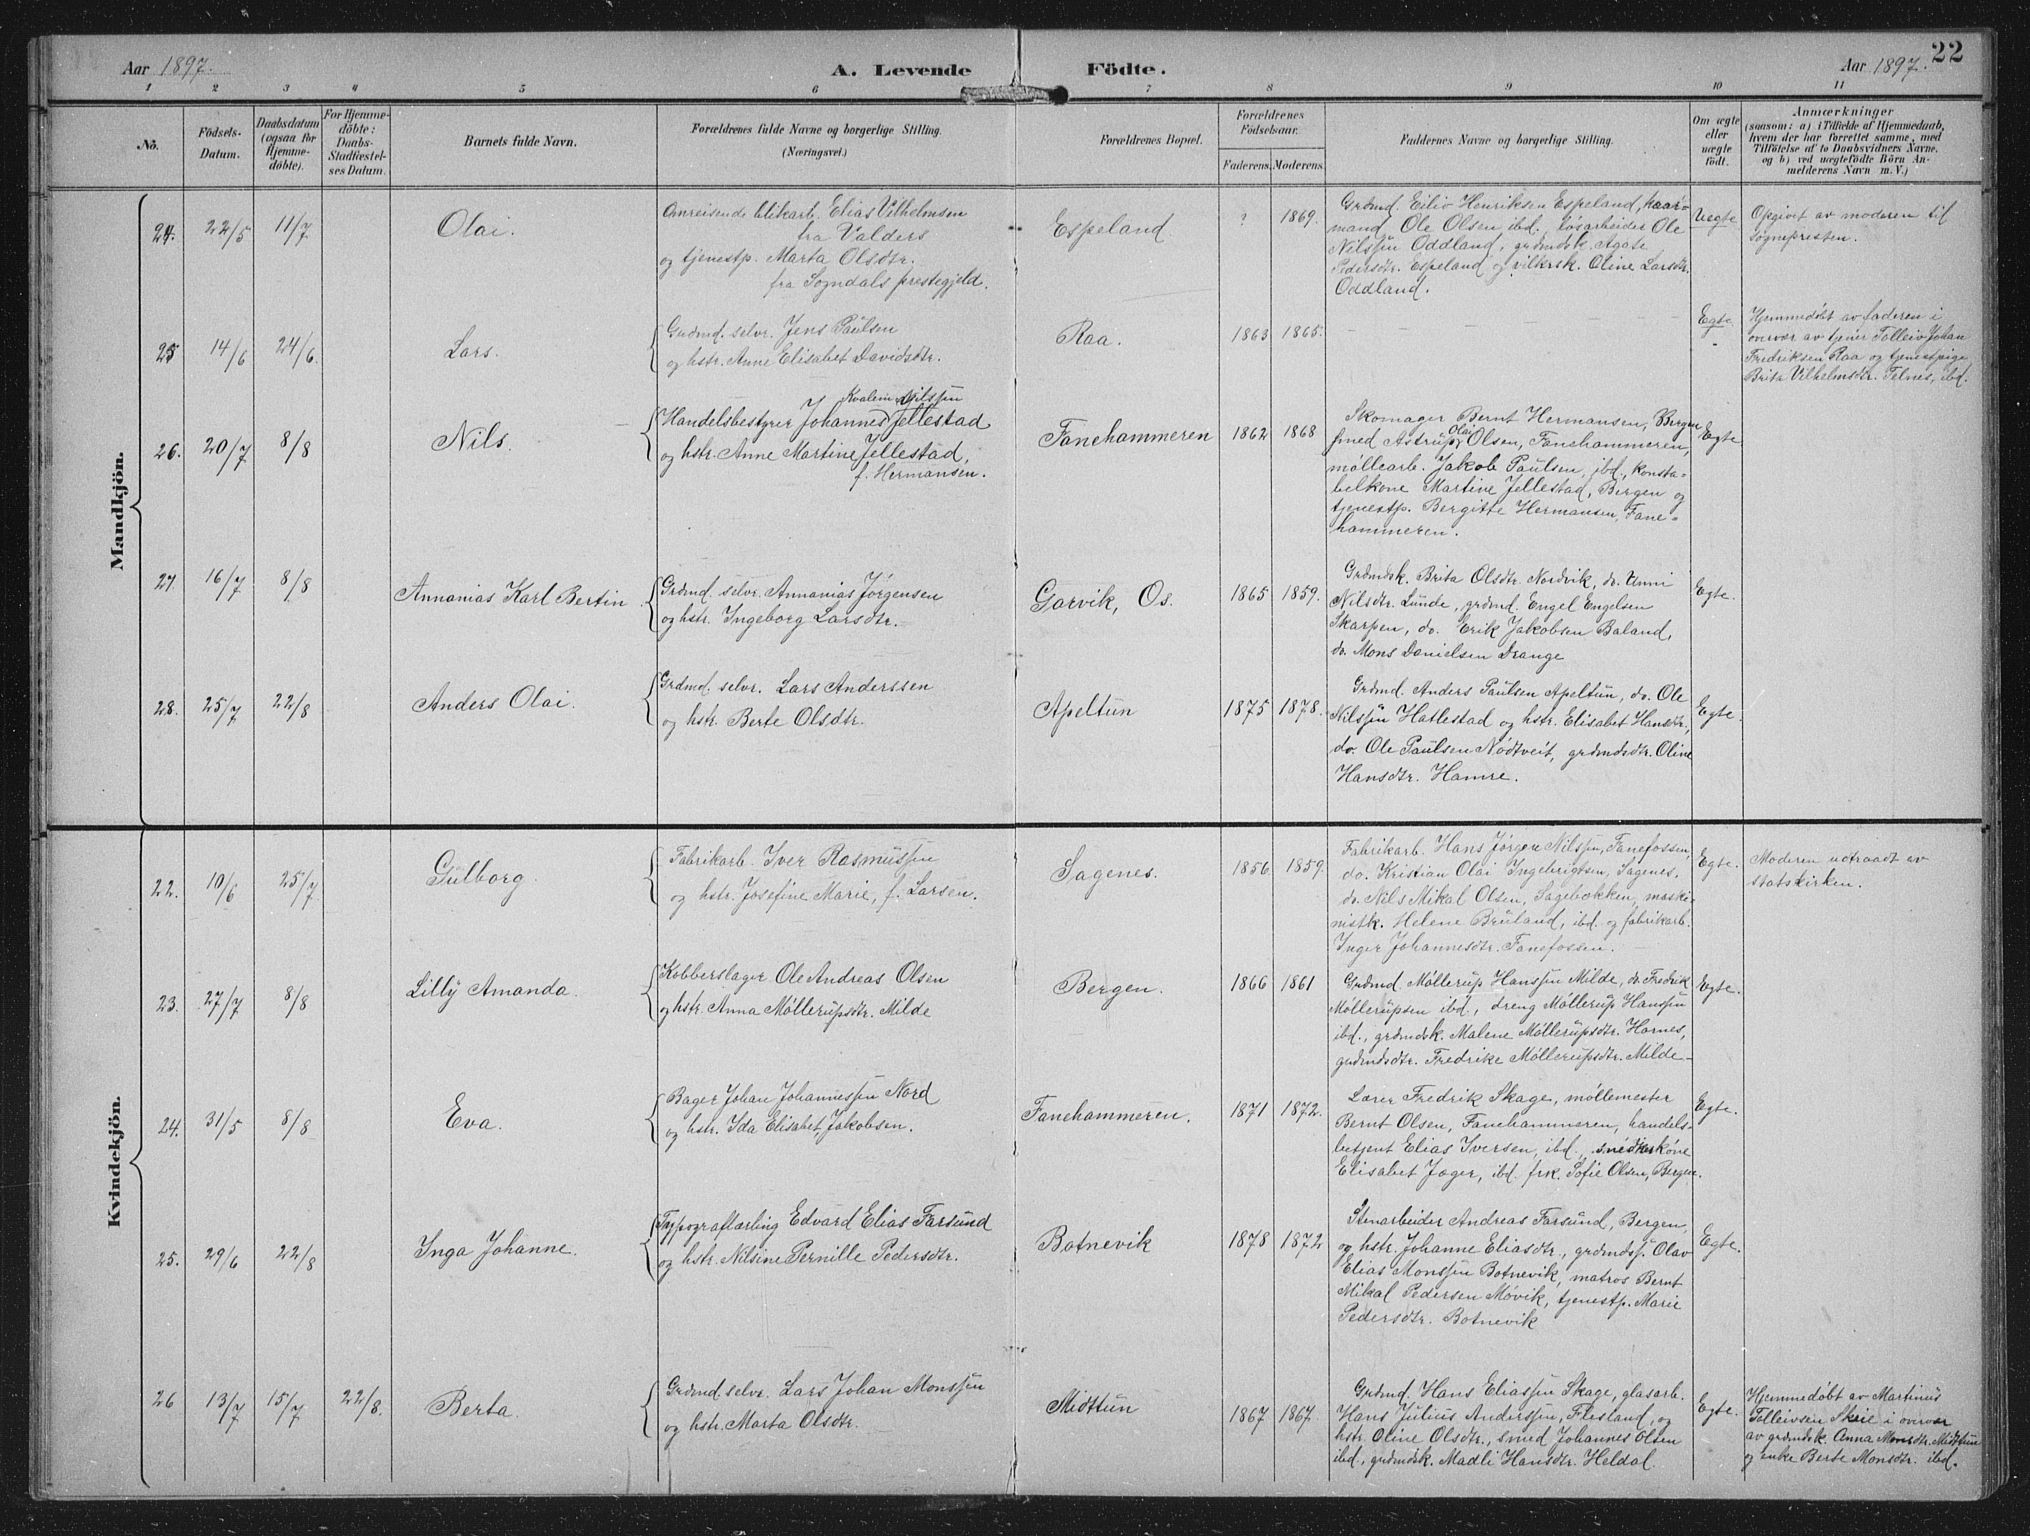 22
Aar 1897.
A. Levende
Födte.
Aar 1897.
1 2 3 4 5 6 7 8 9 10 11
No.
Födsels-
Datum.
Daabsdatum
(ogsaa for
Hjemme-
döbte).
For Hjemme-
döbte:
Daabs-
Stadfæstel-
ses Datum.
Barnets fulde Navn.
Forældrenes fulde Navne og borgerlige Stilling.
(Næringsvei.)
Forældrenes Bopæl.
Forældrenes
Födselsaar.
Faderens. Moderens.
Faddernes Navne og borgerlige Stilling.
Om ægte
eller
uægte
født.
Anmærkninger
(saasom: a) i Tilfælde af Hjemmedaab,
hvem der har forrettet samme, med
Tilföielse af to Daabsvidners Navne,
og b) ved uægtefödte Börn An-
melderens Navn m. V.)
Mandkjön.
24. 22/5 11/7
Olai.
Omreisende blikarb. Elias Vilhelmsen
fra Valders
og tjenestp. Marta Olsdtr.
fra Sogndals prestegjeld.
Espeland
? 1869.
Grdmd. Eiliv Henriksen Espeland, kaar-
mand Ole Olsen ibd. løsarbeider Ole
Nilssen Oddland, grdmdsk. Agate
Pedersdtr. Espeland og vilkrsk. Oline Larsdtr.
Oddland.
Uegte
Opgivet av moderen til
sognepresten.
25 14/6 24/6.
Lars.
Grdmd. selvr. Jens Paulsen
og hstr. Anne Elisabet Davidsdtr.
Raa.
1863 1865.
Egte.
Hjemmedøbt av faderen i
overvær av tjener Tolleiv Johan
Fredriksen Raa og tjenestpige
Brita Vilhelmsdtr. Telnes, ibd.
26. 20/7 8/8
Nils.
Kvalem Nilssen
Handelsbestyrer Johannes Jellestad
og hstr. Anne Martine Jellestad,
f. Hermansen.
Fanehammeren
1862 1868
Skomager Bernt Hermansen, Bergen
smed Astrup Olai Olsen, Fanehammeren,
møllearb. Jakob Paulsen, ibd., konsta-
belkone Martine Jellestad, Bergen og
tjenestp. Bergitte Hermansen, Fane-
hammeren.
Egte.
27. 16/7 8/8
Annanias Karl Bertin
Grdmd. selvr. Annanias Jørgensen
og hstr. Ingeborg Larsdtr.
Garvik, Os.
1865 1859.
Grdmdsk. Brita Olsdtr. Nordvik, do. Unni
Nilsdtr. Lunde, grdmd. Engel Engelsen
Skarpen, do. Erik Jakobsen Baland,
do. Mons Danielsen Drange
Egte.
28. 25/7 22/8
Anders Olai.
Grdmd. selvr. Lars Anderssen
og hstr. Berte Olsdtr.
Apeltun
1875 1878.
Grdmd. Anders Paulsen Apeltun, do. Ole
Nilssen Hatlestad og hstr. Elisabet Hansdtr.,
do. Ole Paulsen Nødtveit, grdmdsdtr. Oline
Hansdtr. Hamre.
Egte.
Kvindekjön.
22. 10/6 25/7
Gulborg.
Fabrikarb. Iver Rasmussen
og hstr. Josefine Marie, f. Larsen.
Sagenes.
1856. 1859.
Fabrikarb. Hans Jørgen Nilssen, Fanefossen,
do. Kristian Olai Ingebrigtsen, Sagenes,
do. Nils Mikal Olsen, Sagebækken, maski-
nistk. Helene Bruland, ibd. og fabrikarb.
Inger Johannesdtr. Fanefossen.
Egte.
Moderen udtraadt av
statskirken.
23. 27/7 8/8
Lilly Amanda.
Kobberslager Ole Andreas Olsen
og hstr. Anna Møllerupsdtr. Milde
Bergen.
1866 1861
Grdmd. Møllerup Hanssen Milde, do. Fredrik
Møllerupsen ibd., dreng Møllerup Hanssen
ibd., grdmdsk. Malene Møllerupsdtr. Hornes,
grdmdsdtr. Fredrike Møllerupsdtr. Milde
Egte.
24. 31/5 8/8
Eva.
Bager Johan Johannessen Nord
og hstr. Ida Elisabet Jakobsen.
Fanehammeren.
1871 1872.
Lærer Fredrik Skage, møllemester
Bernt Olsen, Fanehammeren, handels-
betjent Elias Iversen, ibd., snedkerkone
Elisabet Jæger, ibd. frk. Sofie Olsen, Bergen.
Egte.
25. 29/6 22/8
Inga Johanne.
Typograflærling Edvard Elias Farsund
og hstr. Nilsine Pernille Pedersdtr.
Botnevik
1878 1872
Stenarbeider Andreas Farsund, Bergen,
og hstr. Johanne Eliasdtr., grdmdss. Olav
Elias Monssen Botnevik, matros Bernt
Mikal Pedersen Møvik, tjenestp. Marie
Pedersdtr. Botnevik
Egte.
26 13/7 15/7 22/8.
Berta.
Grdmd. selvr. Lars Johan Monssen
og hstr. Marta Olsdtr.
Midttun
1867 1867.
Grdmd. Hans Eliassen Skage, glasarb.
Hans Julius Anderssen, Flesland, og
hstr. Oline Olsdtr., smed Johannes Olsen
ibd., grdmdsk. Madli Hansdtr. Heldal.
Egte.
Hjemmedøbt av Martinus
Tolleivsen Skeie i overvær
av grdmdsk. Anna Monsdtr. Midttun
og enke Berte Monsdtr. ibd.